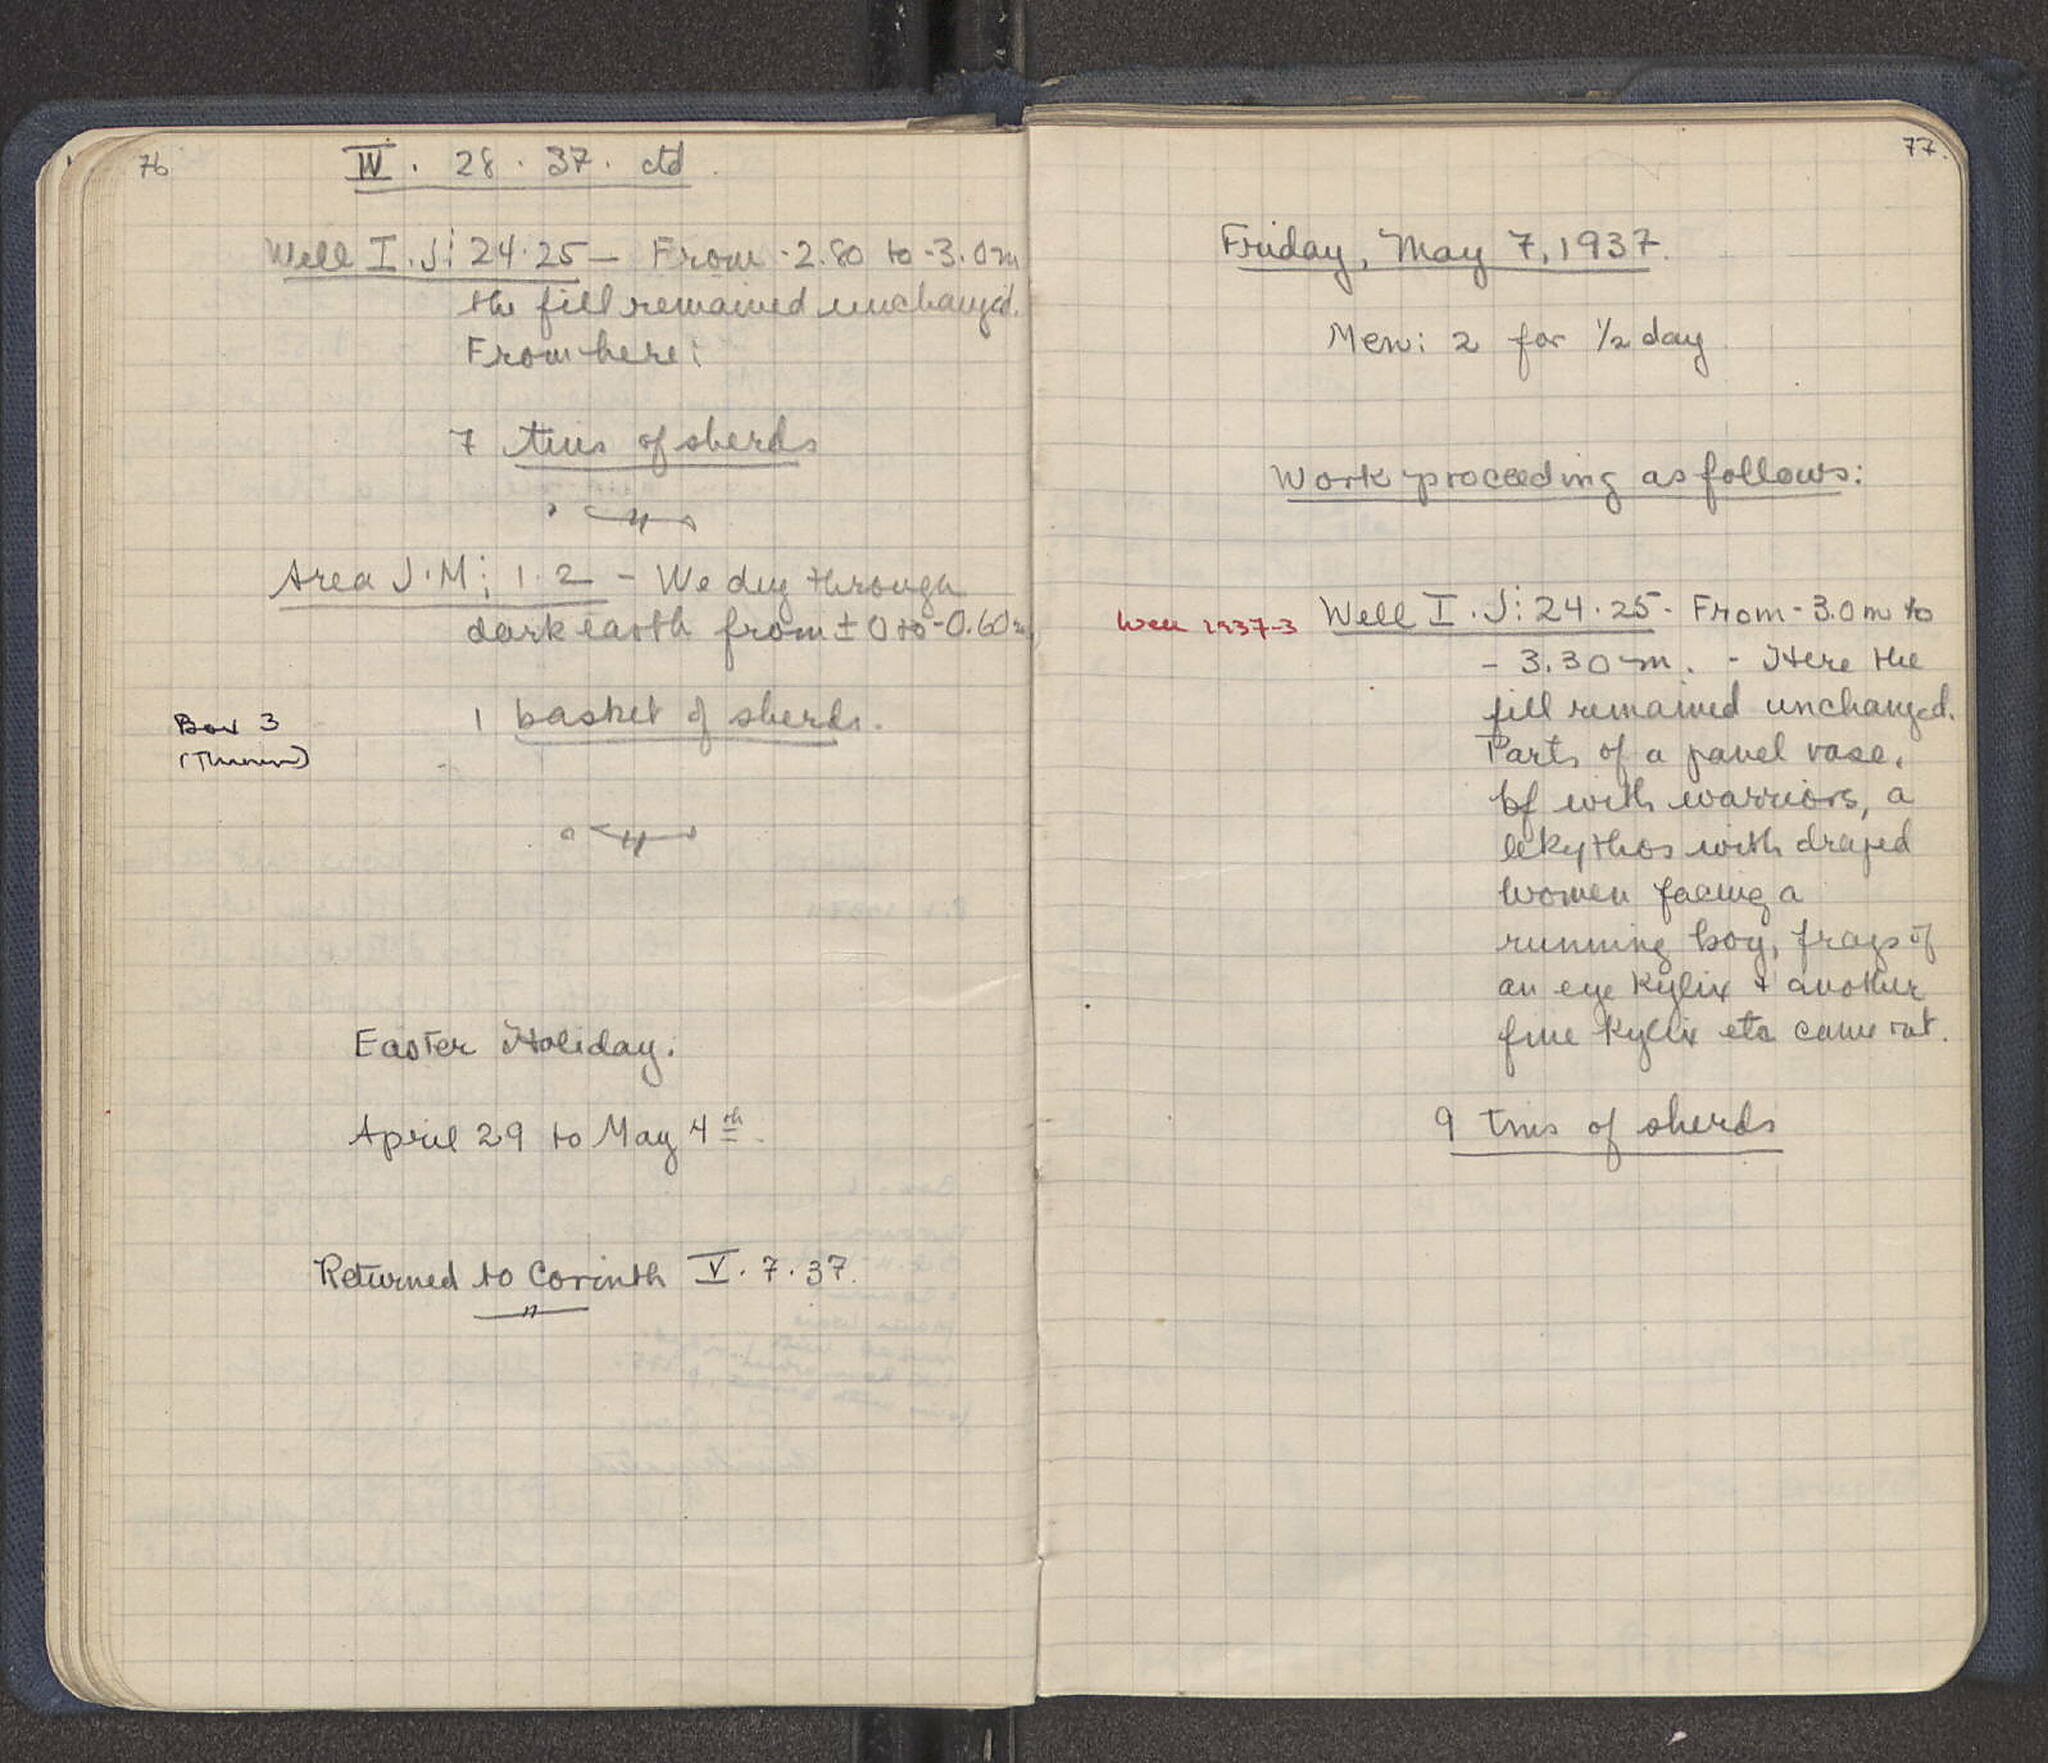 76
IV. 28. 37. ctd.
Well I.J: 24.25 — From -2.80 to -3.0m
the fill remained unchanged.
From here:
7 tins of sherds
Area J.M: 1.2 — We dug through
dark earth from ±0 to -0.60m
Box 3
1 basket of sherds.
Easter Holiday.
April 29 to May 4th.
Returned to Corinth V. 7. 37.
77.
Friday, May 7, 1937.
Men: 2 for 1/2 day
Work proceeding as follows:
Well 1937-3
Well I.J: 24.25 - From -3.0m to
-3.30m. - Here the
fill remained unchanged.
Parts of a panel vase,
bf with warriors, a
lekythos with draped
women facing a
running boy, frags of
an eye kylix + another
fine kylix etc came out.
9 tins of sherds